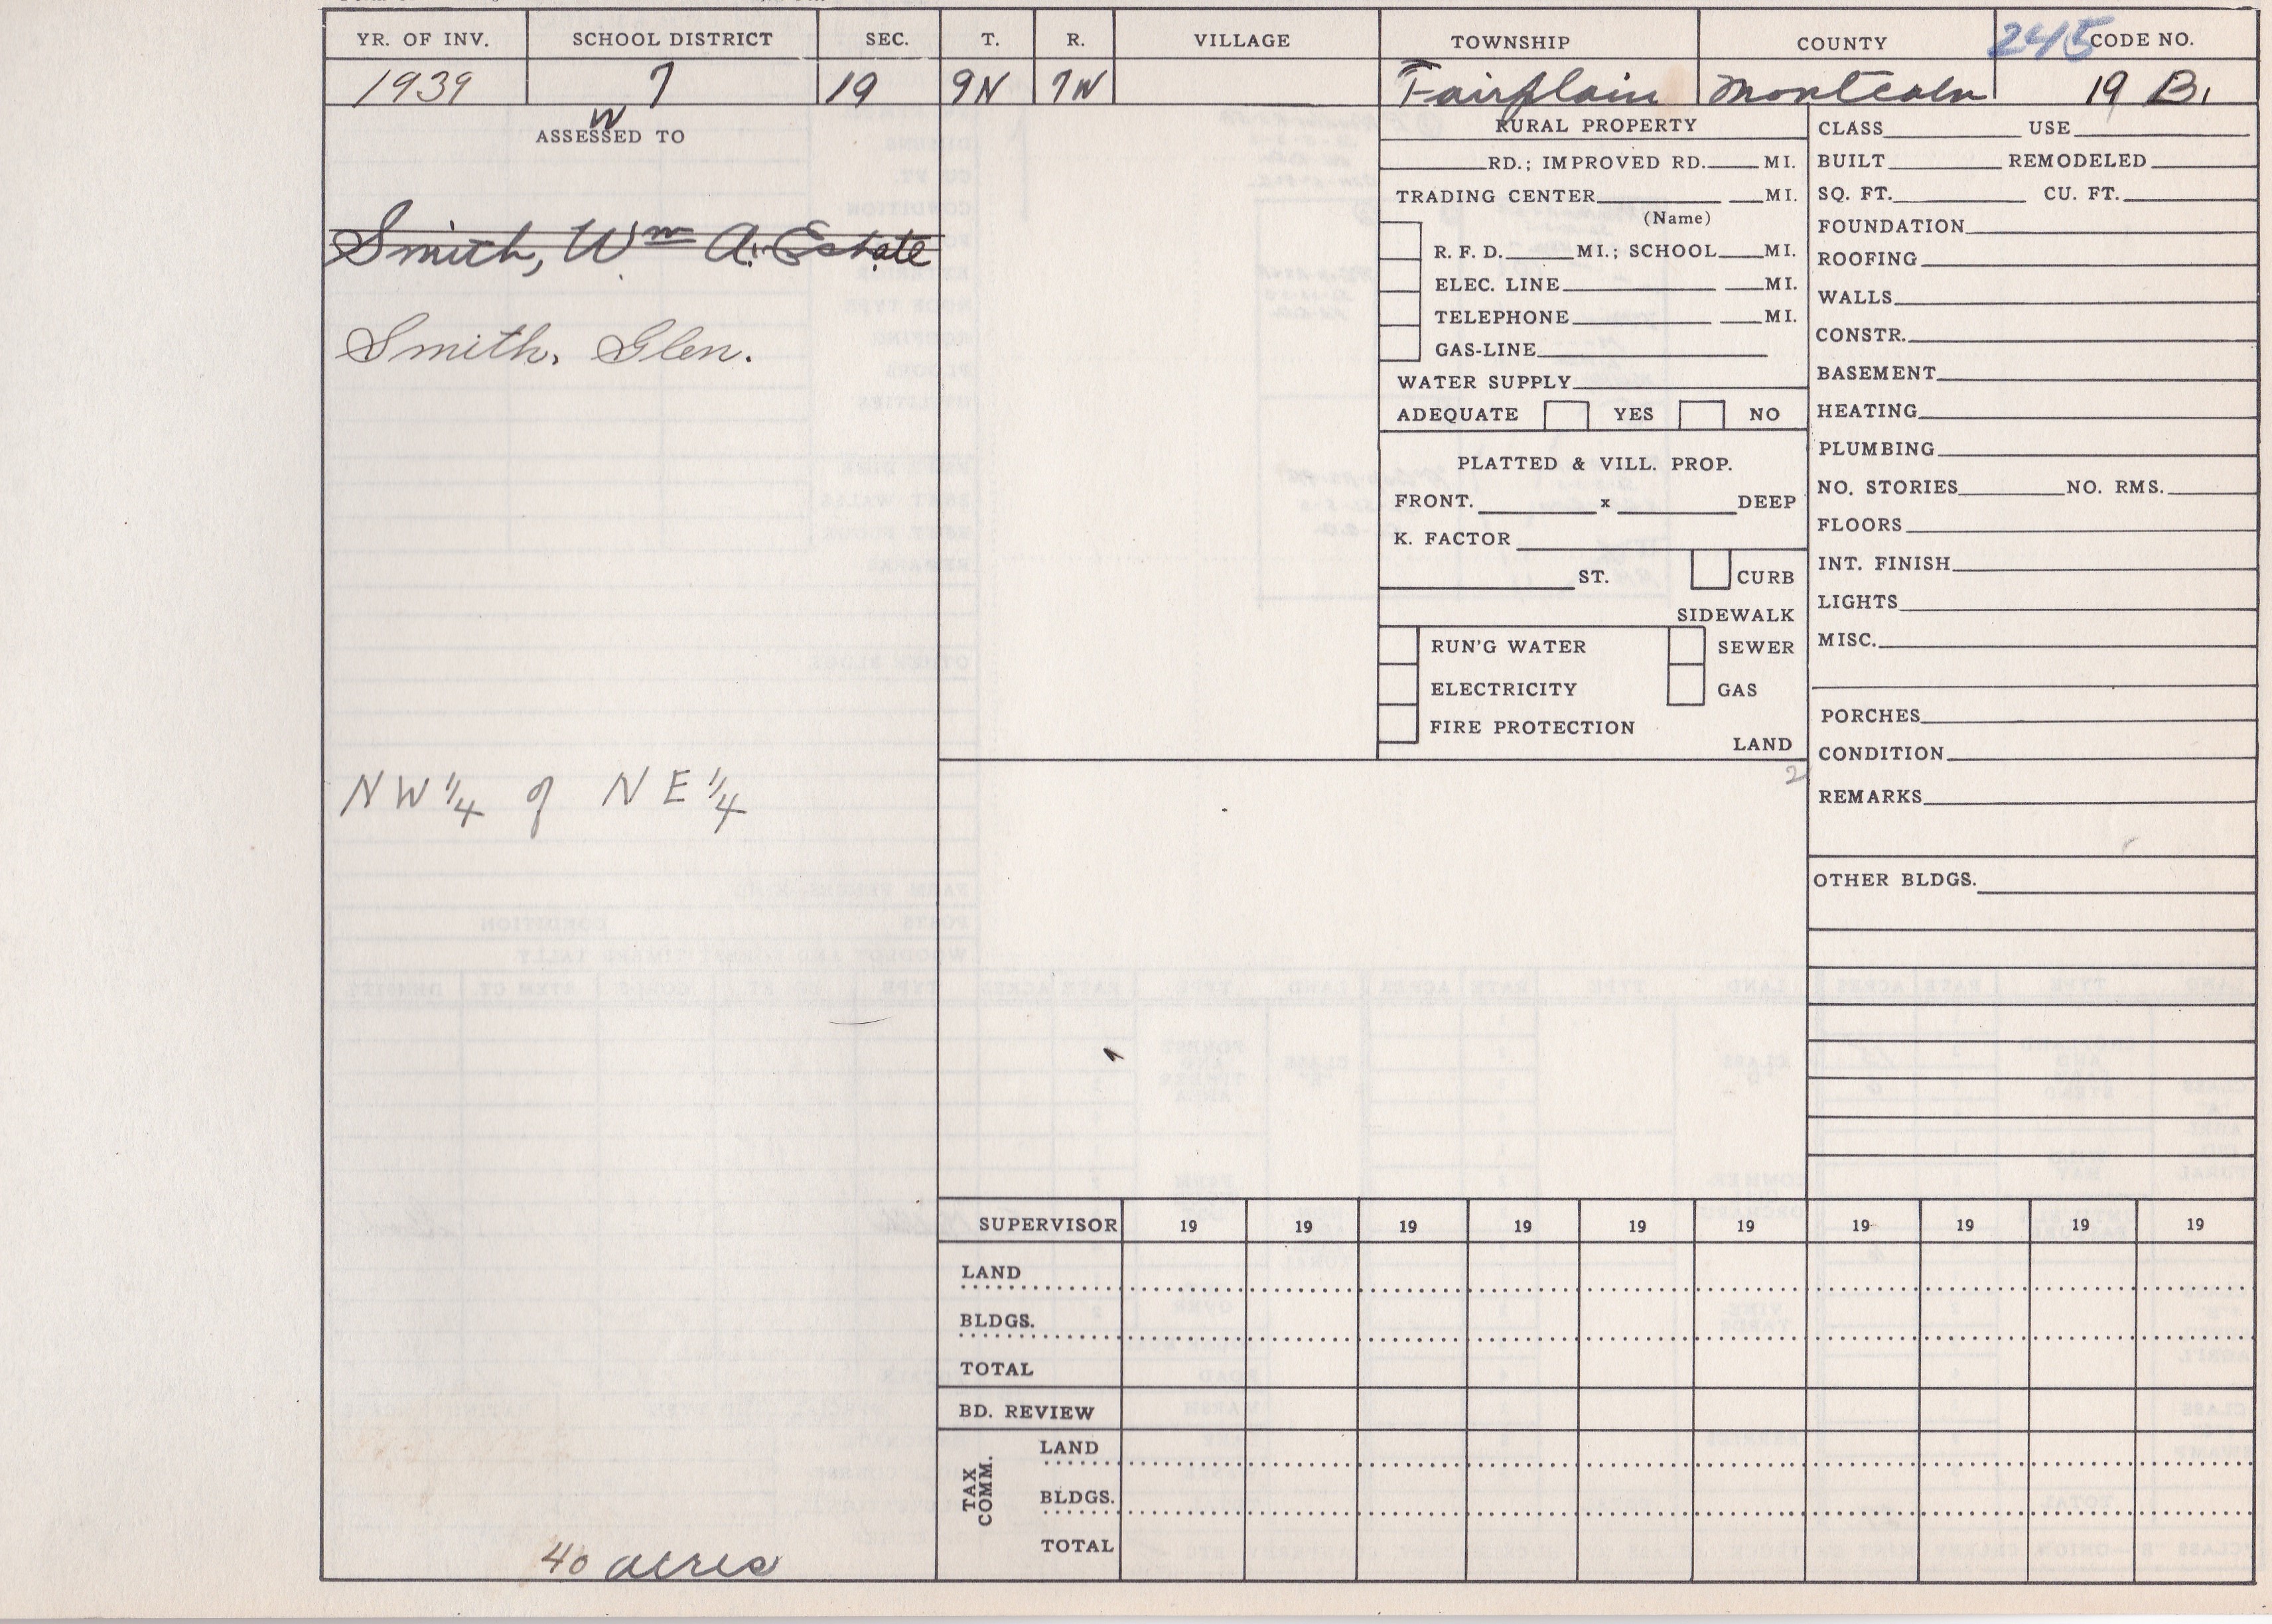 YR. OF INV. SCHOOL DISTRICT SEC. T. R. VILLAGE TOWNSHIP COUNTY 245 CODE NO.
1939 7 19 9N 7W Fairplain Montcalm 19 B.
W
ASSESSED TO
Smith, Wm A. Estate
Smith, Glen.
NW 1/4 of NE 1/4
40 acres
RURAL PROPERTY
RD.; IMPROVED RD. MI.
TRADING CENTER MI.
(Name)
R. F. D. MI.; SCHOOL MI.
ELEC. LINE MI.
TELEPHONE MI.
GAS-LINE
WATER SUPPLY
ADEQUATE YES NO
PLATTED & VILL. PROP.
FRONT. x DEEP
K. FACTOR
ST. CURB
SIDEWALK
RUN'G WATER SEWER
ELECTRICITY GAS
FIRE PROTECTION
LAND
2
CLASS USE
BUILT REMODELED
SQ. FT. CU. FT.
FOUNDATION
ROOFING
WALLS
CONSTR.
BASEMENT
HEATING
PLUMBING
NO. STORIES NO. RMS.
FLOORS
INT. FINISH
LIGHTS
MISC.
PORCHES
CONDITION
REMARKS
OTHER BLDGS.
SUPERVISOR 19 19 19 19 19 19 19 19 19 19
LAND
BLDGS.
TOTAL
BD. REVIEW
TAX COMM.
LAND
BLDGS.
TOTAL